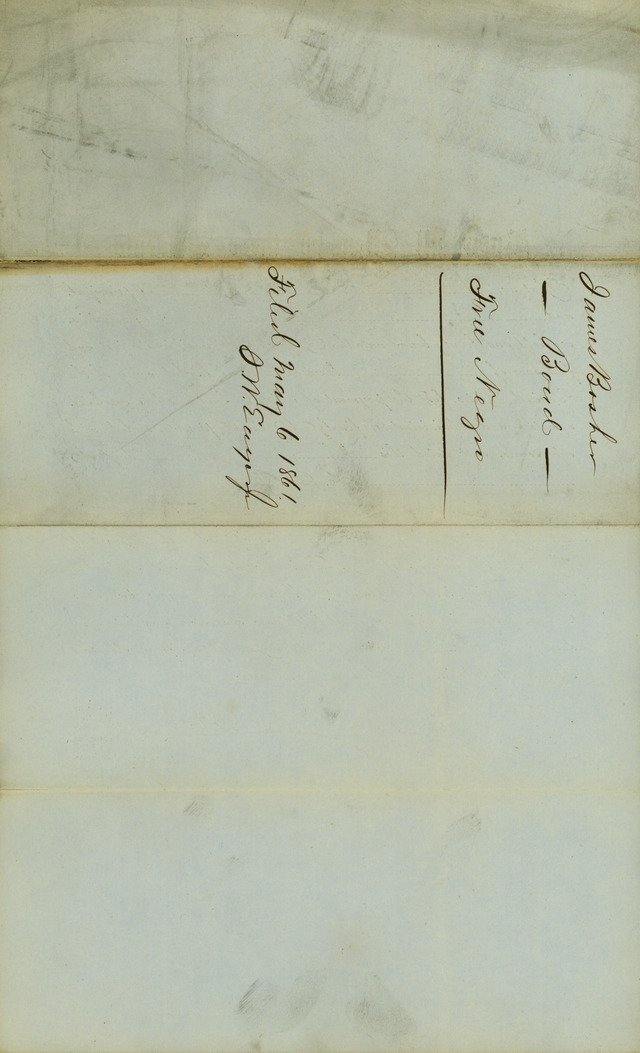 James Bosher
— Bond —
Free Negro
Filed May 6 1861